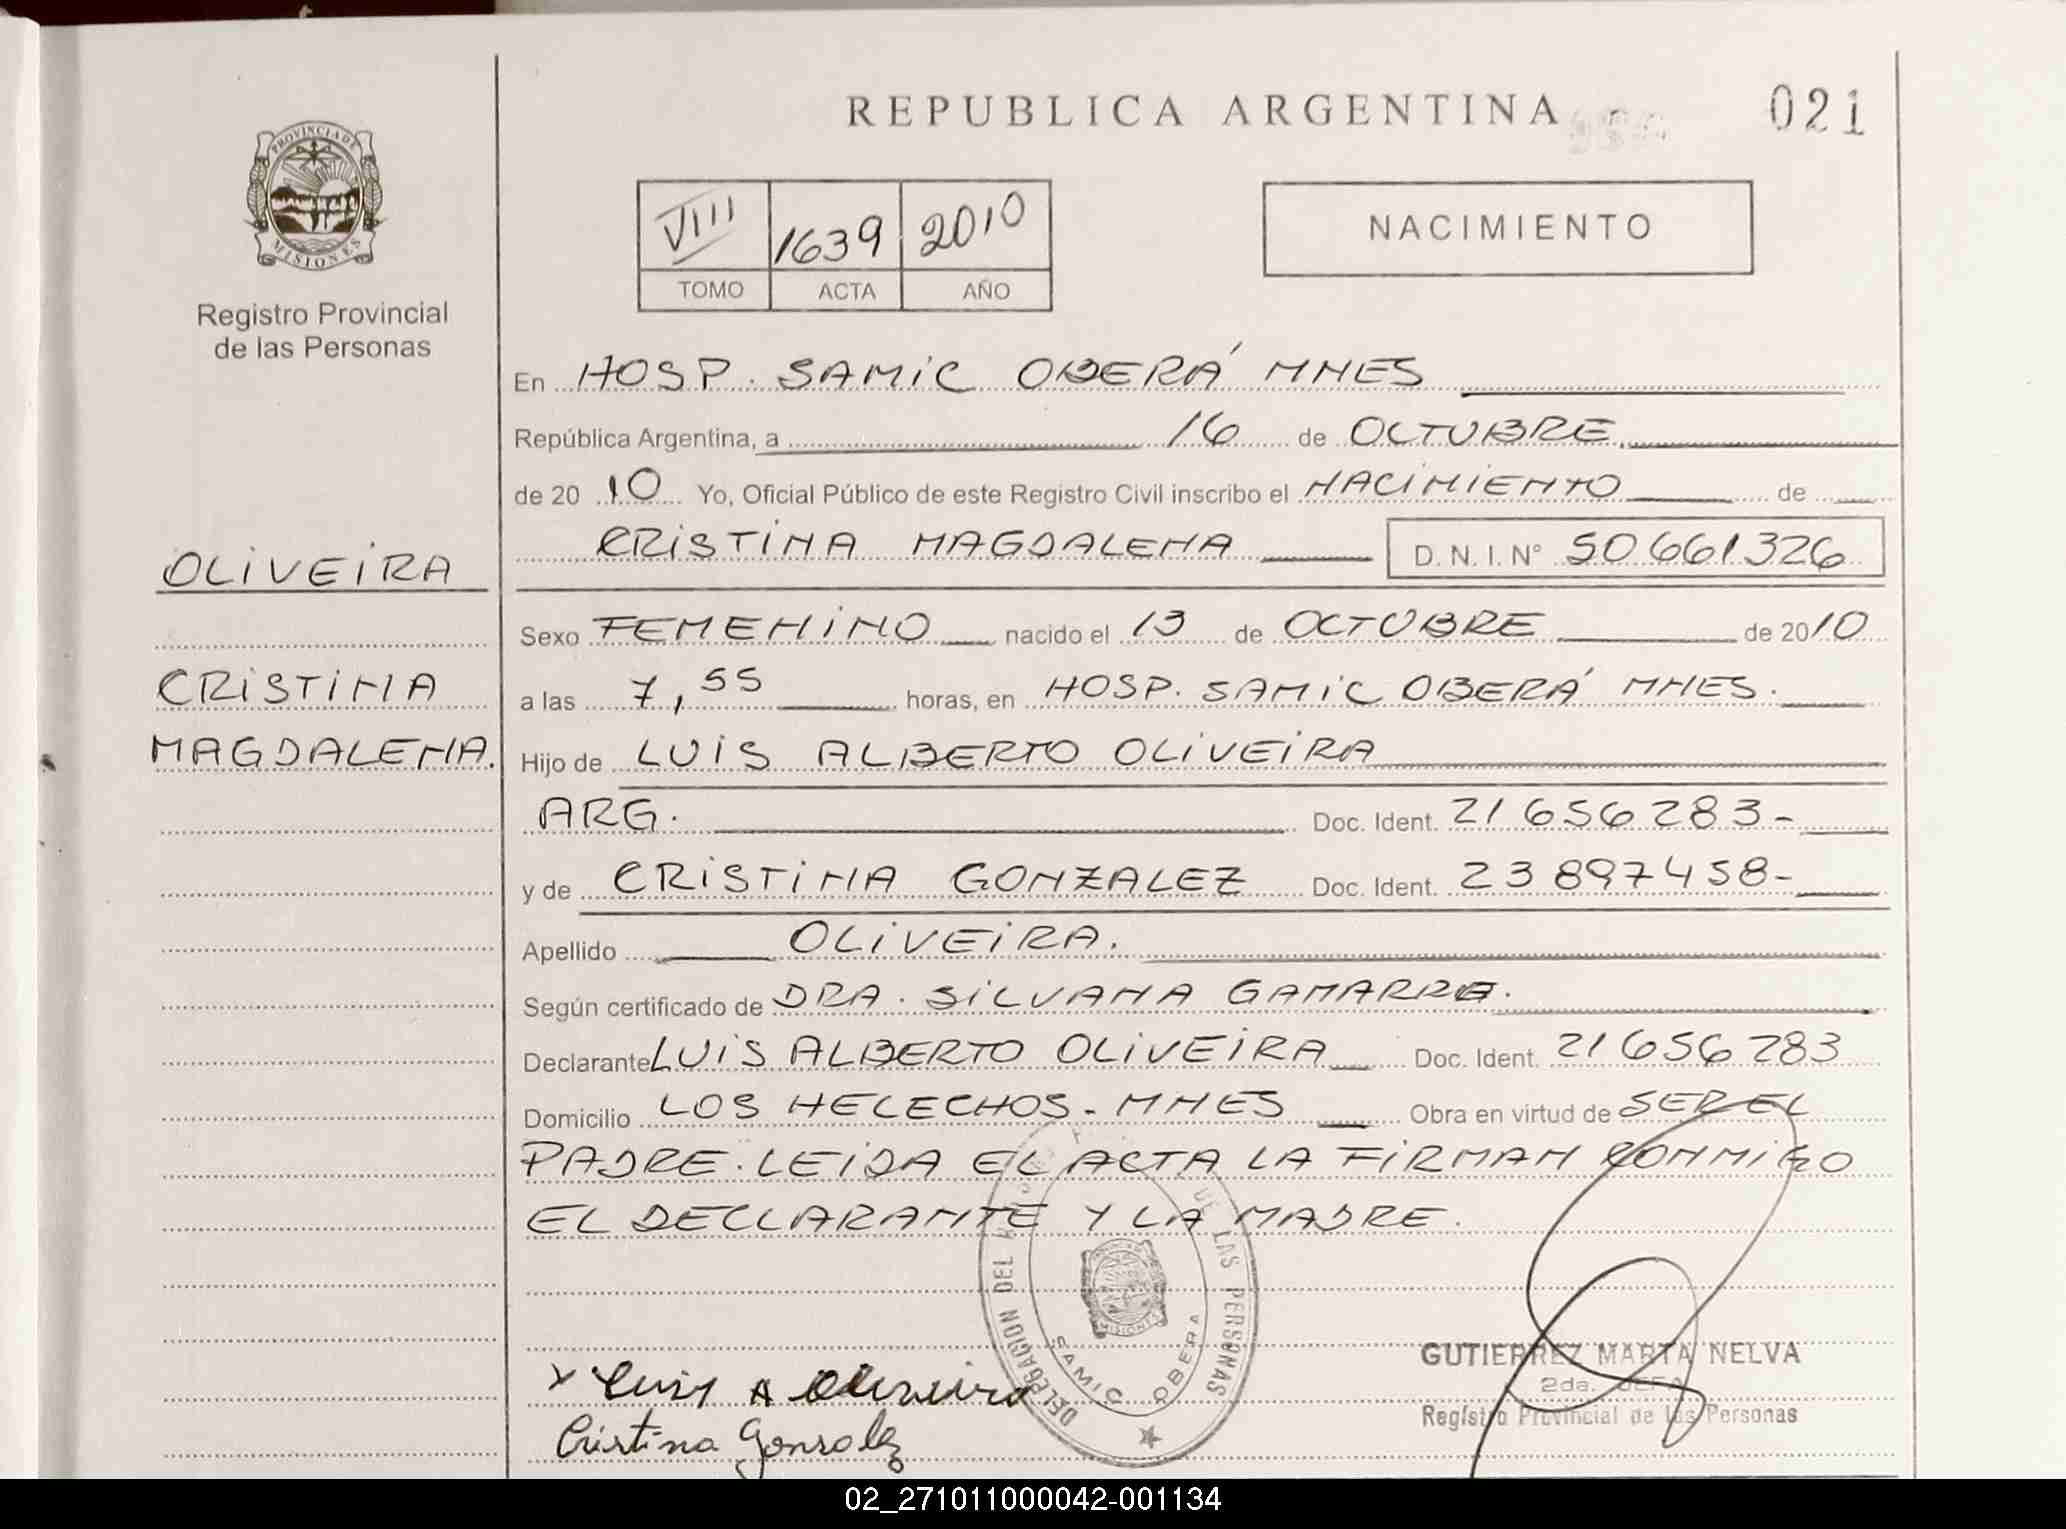 REPUBLICA ARGENTINA
021
PROVINCIA DE
MISIONES
Registro Provincial
de las Personas
VIII 1639 2010
TOMO ACTA AÑO
NACIMIENTO
En HOSP. SAMIC OBERÁ MNES
República Argentina, a 16 de OCTUBRE
de 2010 Yo, Oficial Público de este Registro Civil inscribo el NACIMIENTO de
CRISTINA MAGDALENA D.N.I.Nº 50661326
OLIVEIRA
CRISTINA
MAGDALENA.
Sexo FEMENINO nacido el 13 de OCTUBRE de 2010
a las 7,55 horas, en HOSP. SAMIC OBERÁ MNES.
Hijo de LUIS ALBERTO OLIVEIRA
ARG. Doc. Ident. 21656283-
y de CRISTINA GONZALEZ Doc. Ident. 23897458-
Apellido OLIVEIRA.
Según certificado de DRA. SILVANA GAMARRA.
Declarante LUIS ALBERTO OLIVEIRA Doc. Ident. 21656283
Domicilio LOS HELECHOS - MNES Obra en virtud de SER EL
PADRE. LEIDA EL ACTA LA FIRMAN CONMIGO
EL DECLARANTE Y LA MADRE.
DELEGACION DEL LAS PERSONAS
MISIONES
SAMIC OBERA
x Luis A Oliveira
Cristina Gonzalez
GUTIERREZ MARTA NELVA
2da. JEFA
Registro Provincial de las Personas
02_271011000042-001134